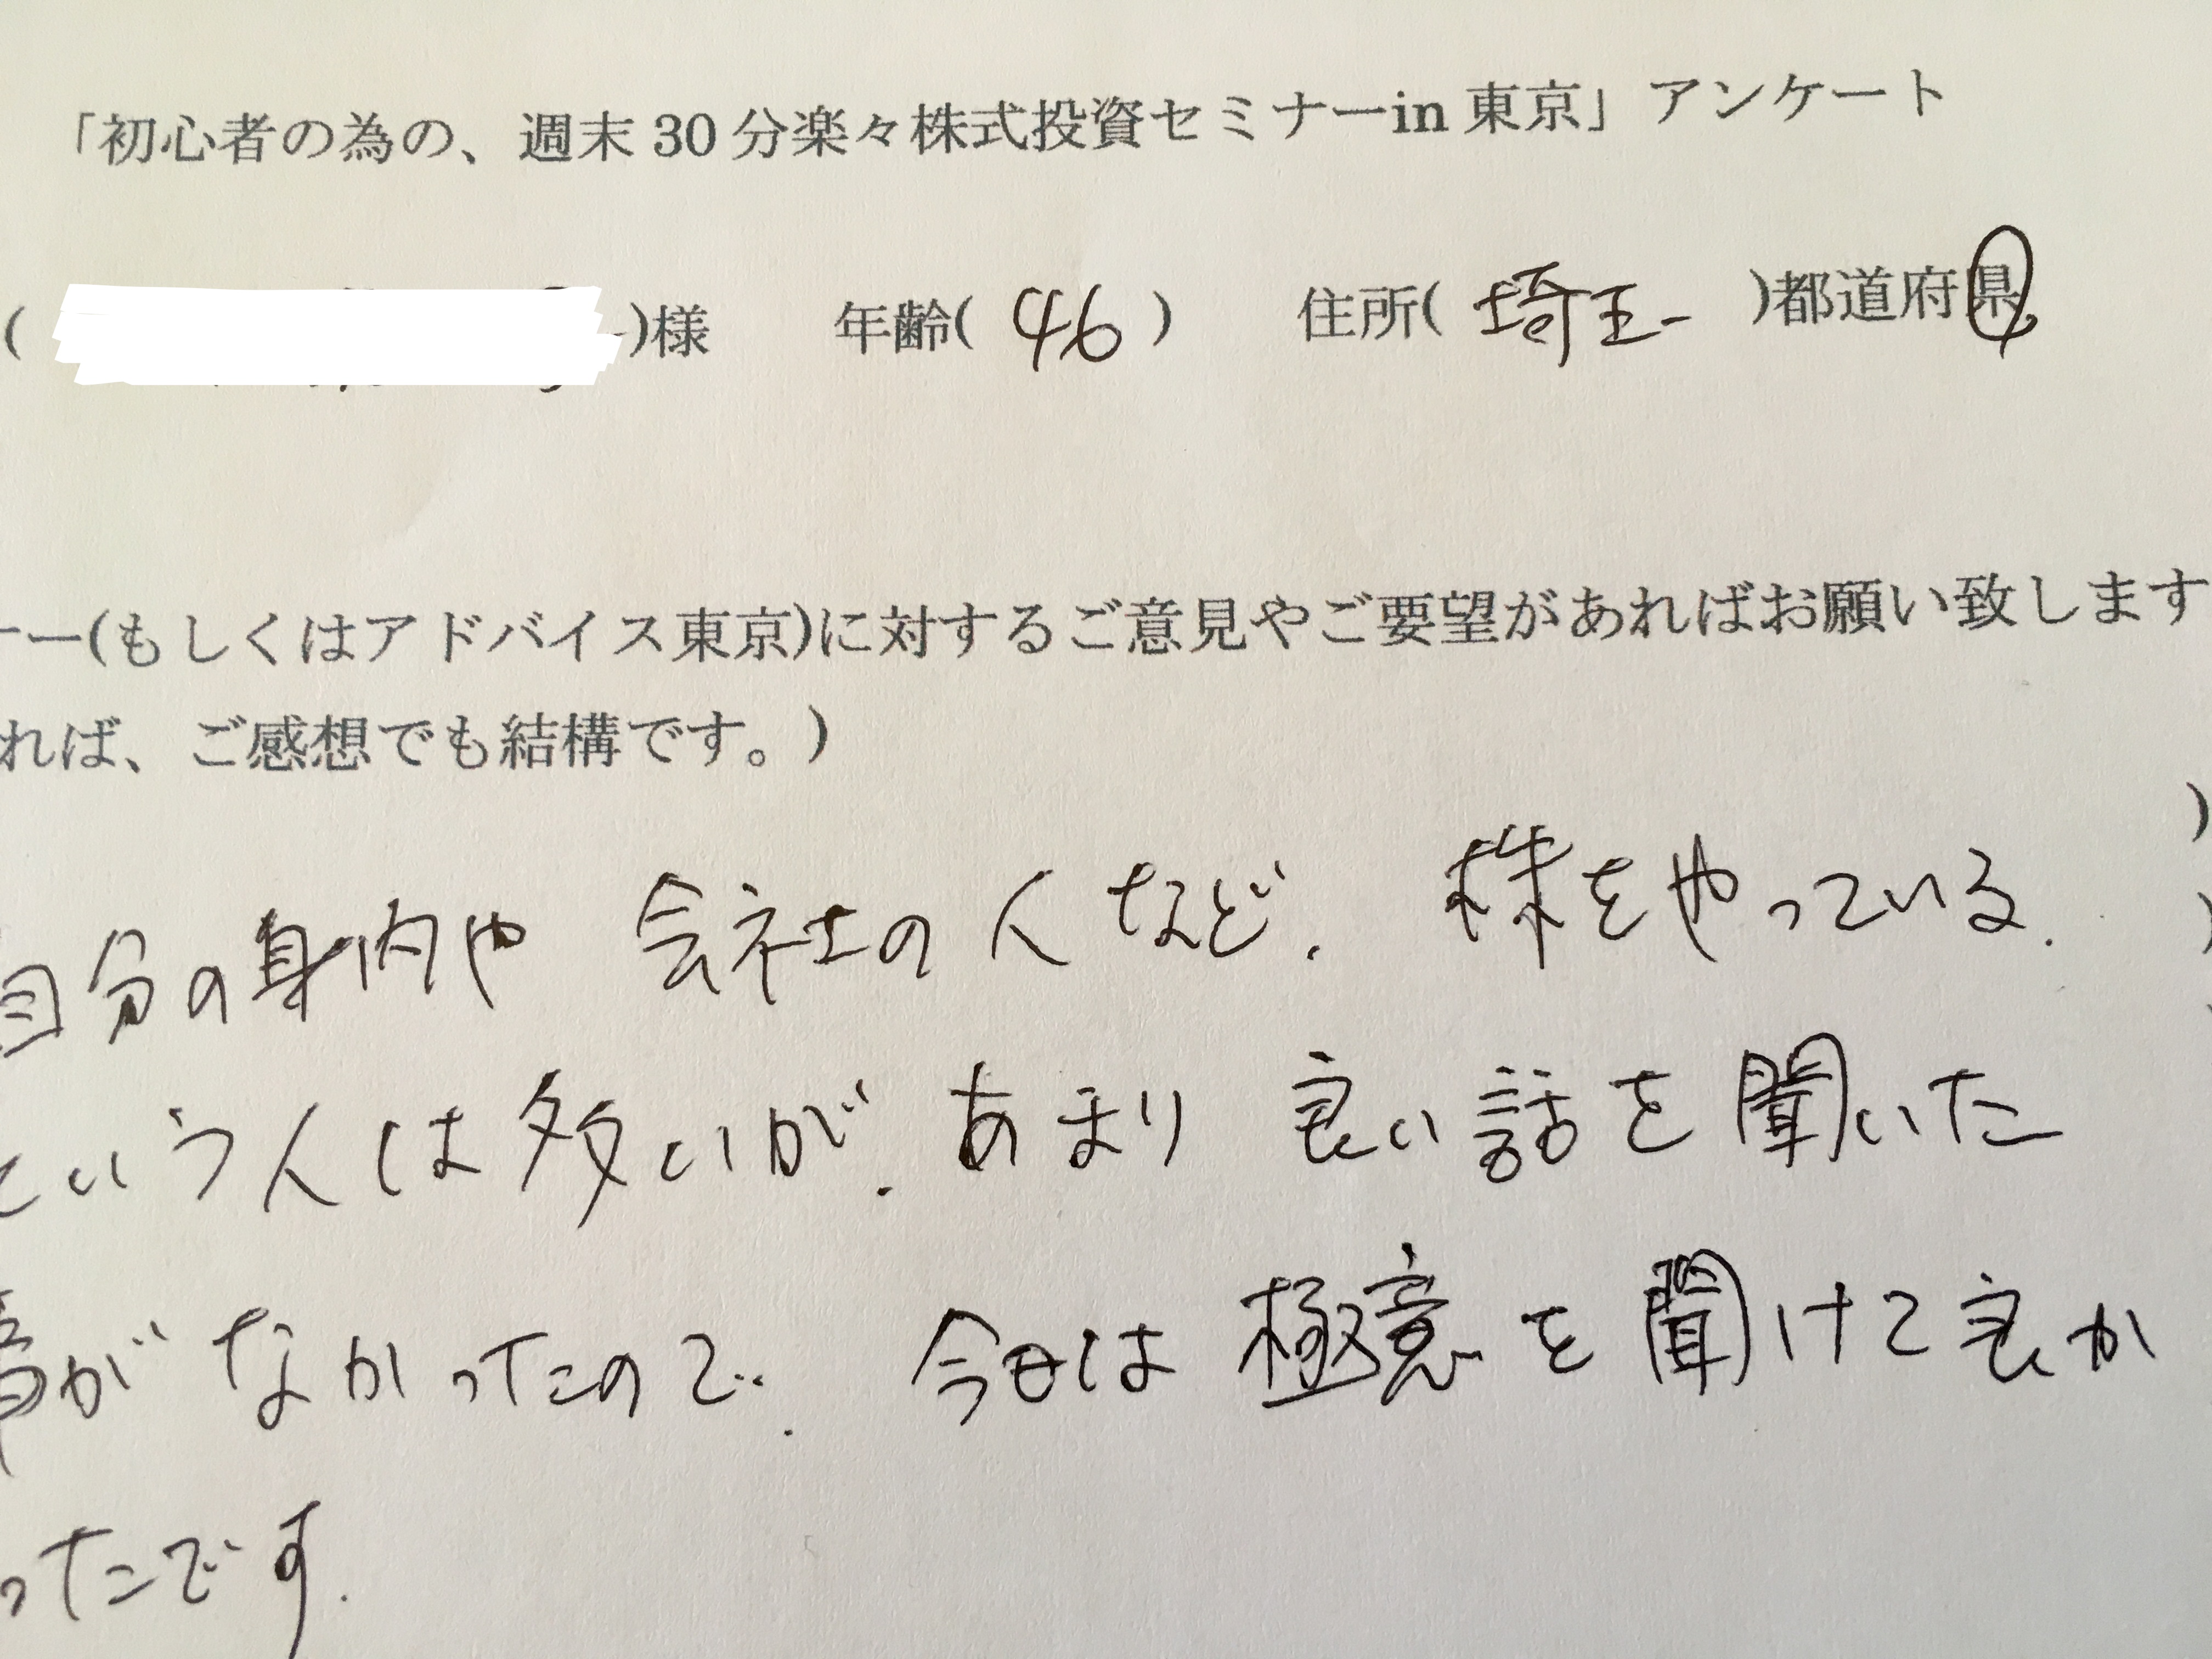 「初心者の為の、週末30分楽々株式投資セミナーin東京」アンケート
( )様 年齢( 46 ) 住所( 埼玉 )都道府県
ー(もしくはアドバイス東京)に対するご意見やご要望があればお願い致します
れば、ご感想でも結構です。)
自分の身内や 会社の人など. 株をやっている.
という人は多いが. あまり 良い話を聞いた
事がなかったので. 今日は極意を聞けて良か
ったです.